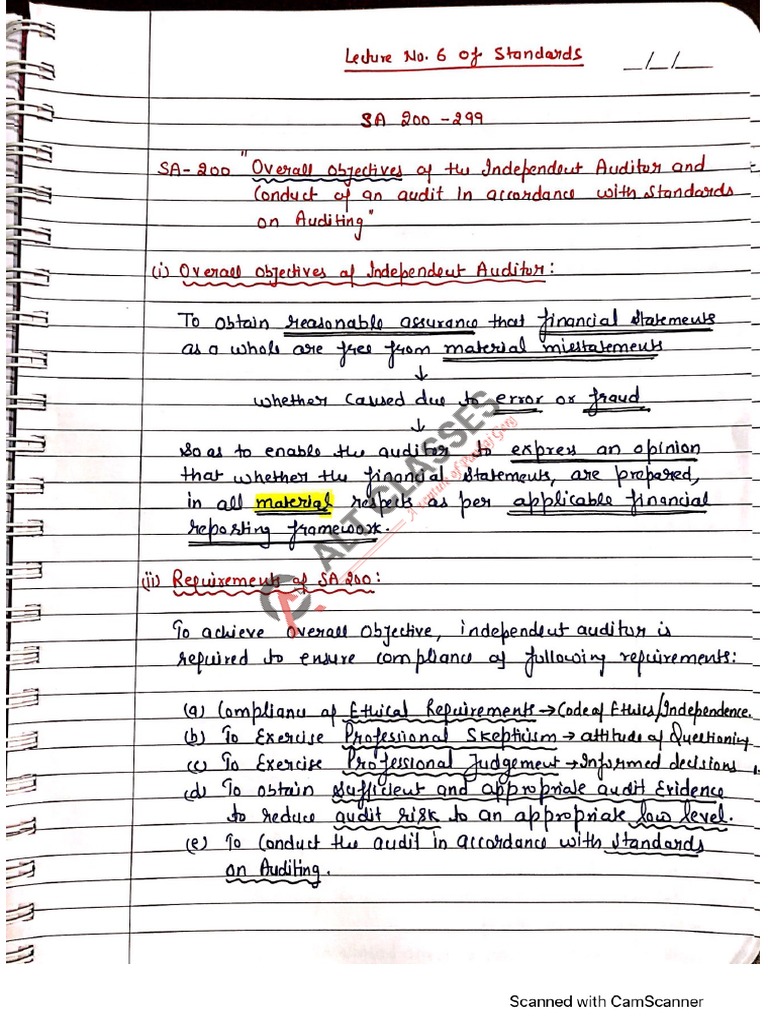 Lecture No. 6 of Standards __/__/__
SA 200 - 299
SA- 200 "Overall objectives of the Independent Auditor and
Conduct of an audit in accordance with Standards
on Auditing"
(i) Overall objectives of Independent Auditor:
To obtain reasonable assurance that financial statements
as a whole are free from material misstatements
↓
whether caused due to error or fraud
↓
So as to enable the auditor to express an opinion
that whether the financial statements, are prepared,
in all material respects as per applicable financial
reporting framework.
ALT CLASSES
A venture of Pankaj Garg
(ii) Requirements of SA 200:
To achieve overall objective, independent auditor is
required to ensure compliance of following requirements:
(a) Compliance of Ethical Requirements → Code of Ethics/Independence.
(b) To Exercise Professional Skepticism → attitude of Questioning
(c) To Exercise Professional Judgement → Informed decisions
(d) To obtain sufficient and appropriate audit Evidence
to reduce audit risk to an appropriate low level.
(e) To conduct the audit in accordance with Standards
on Auditing.
Scanned with CamScanner